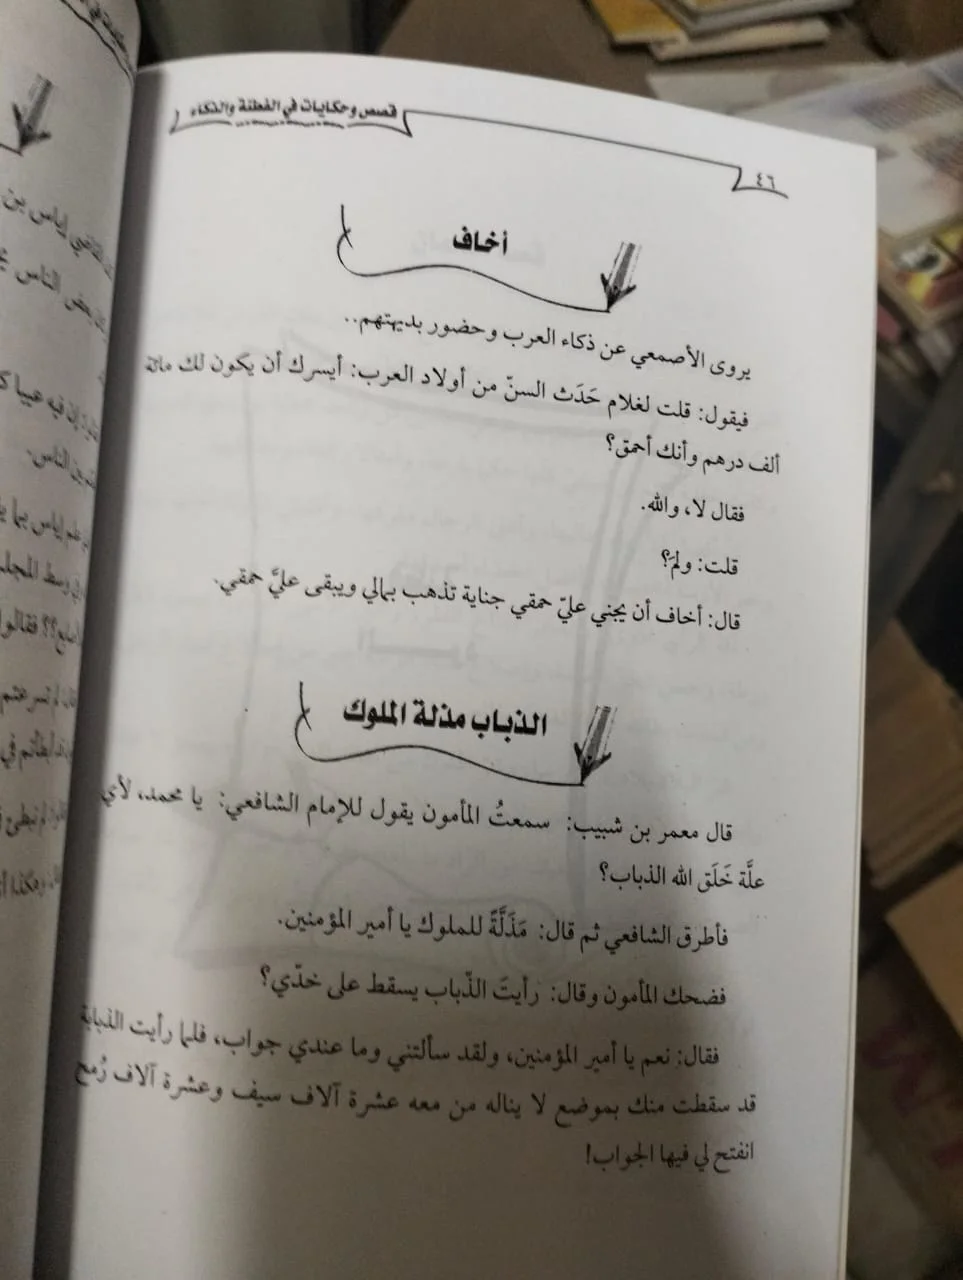 قصص وحكايات في الفطنة والذكاء
٤٦
أخاف
يروى الأصمعي عن ذكاء العرب وحضور بديهتهم..
فيقول: قلت لغلام حَدَث السنّ من أولاد العرب: أيسرك أن يكون لك مائة
ألف درهم وأنك أحمق؟
فقال لا، والله.
قلت: ولمَ؟
قال: أخاف أن يجني عليّ حمقي جناية تذهب بمالي ويبقى عليَّ حمقي.
الذباب مذلة الملوك
قال معمر بن شبيب: سمعتُ المأمون يقول للإمام الشافعي: يا محمد، لأي
علَّة خَلَق الله الذباب؟
فأطرق الشافعي ثم قال: مَذَلَّةً للملوك يا أمير المؤمنين.
فضحك المأمون وقال: رأيتَ الذّباب يسقط على خدّي؟
فقال: نعم يا أمير المؤمنين، ولقد سألتني وما عندي جواب، فلما رأيت الذبابة
قد سقطت منك بموضع لا يناله من معه عشرة آلاف سيف وعشرة آلاف رُمح
انفتح لي فيها الجواب!
القاضي إياس بن
بعض الناس
إن فيه عيبا
بين الناس.
علم إياس بما
وسط المجلس
فقالوا
لم تسرعتم